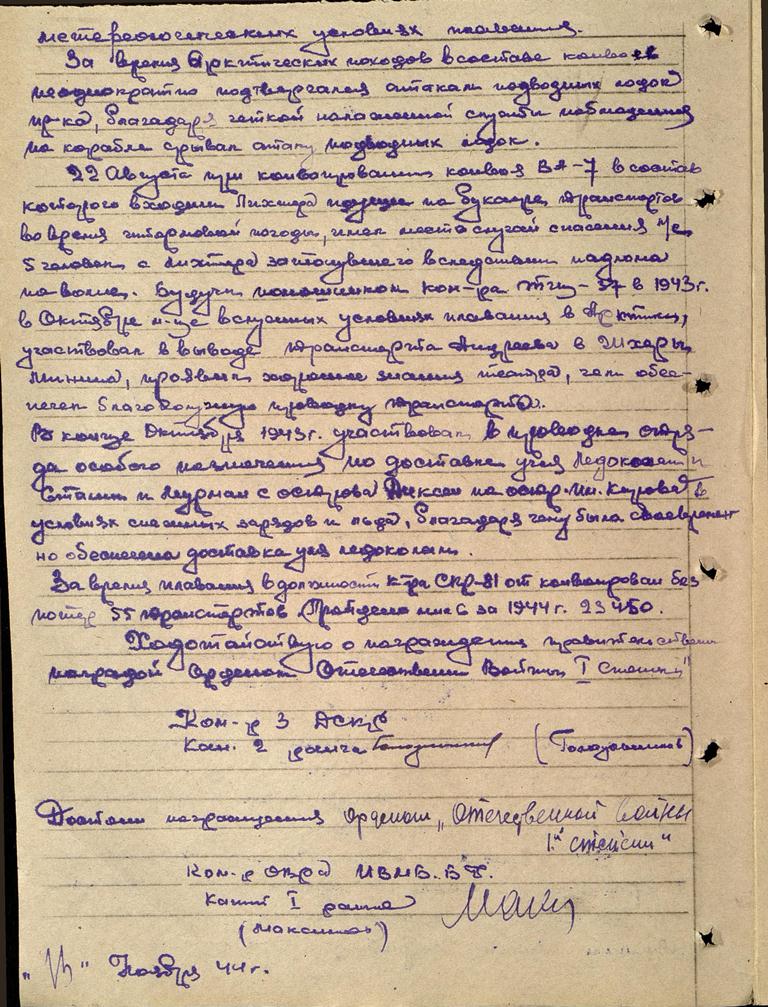 метереологических условиях плавания.
За время Арктических походов в составе конвоев
неоднократно подтвергался атакам подводных лодок
пр-ка, благодаря четкой налаженной службы наблюдения
на корабле срывал атаку подводных лодок.
22 Августа при конвоировании конвоя ВА-7 в состав
которого входили Лихтера на буксире транспортов
во время штормовой погоды, имел место случай спасения
5 человек с лихтера затонувшего вследствии надлома
на волне. Будучи помошником ком-ра ТЩ-37 в 1943г.
в Октябре м-це в условиях плавания в Арктики,
участвовал в выводе транспорта Андреев в Шхеры
Минина, проявил хорошое знания театра, чем обес-
печел благополучную проводку транспорта.
В конце Октября 1943г. участвовал в проводке отря-
да особого назначения по доставке угля ледоколам
Сталин и Мурман с острова Диксон на остр. Кирова в
условиях снежных зарядов и льда, благодаря чему была своевремен
но обеспечена доставка угля ледоколам.
За время плавания в должности к-ра СКР-81 отконвоировал без
потер 55 транспортов. Пройдено миль за 1944г. 23450.
Ходотайствую о награждении правительствен
наградой Орденом Отечествен Войны I степени"
Ком-р 3 ДСКР
Кап. 2 ранга (Голозубинков)
Достоин награждения Орденом „Отечественной войны
1ой степени"
Ком-р ОВРа ИВМБ. БФ.
Капит I ранга
(Максимов)
" Ноября 44г.